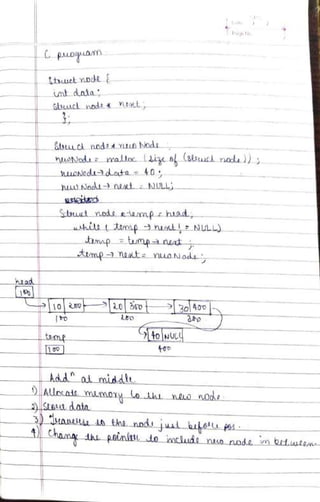 Date
Page No.
C program
Struct node {
int data;
Struct node * next;
};
Struct node * new Node
newNode = malloc (size of (struct node));
newNode → data = 40;
new Node → next = NULL;
Struct node * temp = head,
while ( temp → next != NULL)
temp = temp → next ;
temp → next = newNode;
head
100
10 200 → 20 300 → 30 400
100 200 300
temp 40 NULL
100 400
Addⁿ at middle
1) Allocate memory to the new node
2) Store data
3) Traverse to the node just before pos.
4) Change the pointer to include new node in between